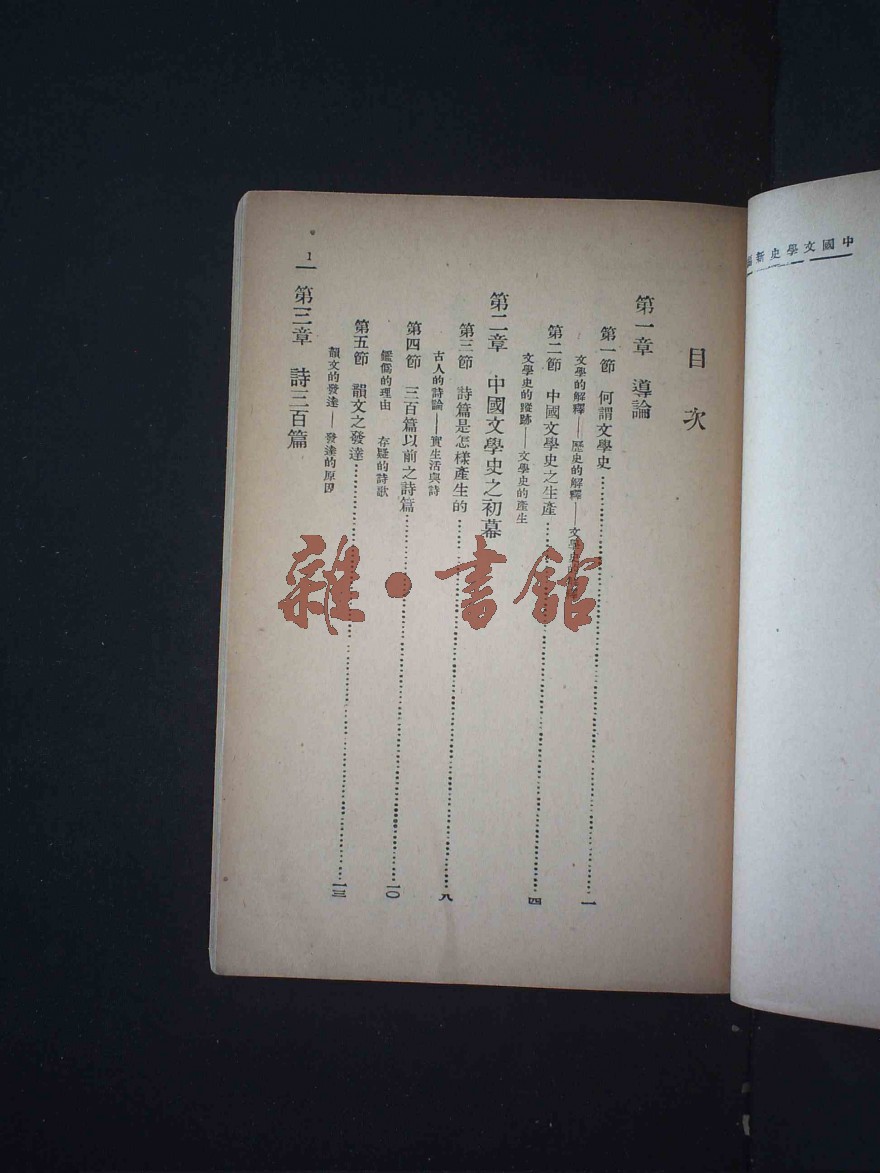 中國文學史新
目次
第一章 導論
第一節 何謂文學史……一
文學的解釋——歷史的解釋——文學史
第二節 中國文學史之生產……四
文學史的蹤跡——文學史的產生
第二章 中國文學史之初幕
第三節 詩篇是怎樣產生的……八
古人的詩論——實生活與詩
第四節 三百篇以前之詩篇……一〇
鑑僞的理由 存疑的詩歌
第五節 韻文之發達……一三
韻文的發達——發達的原因
第三章 詩三百篇
1
雜·書館